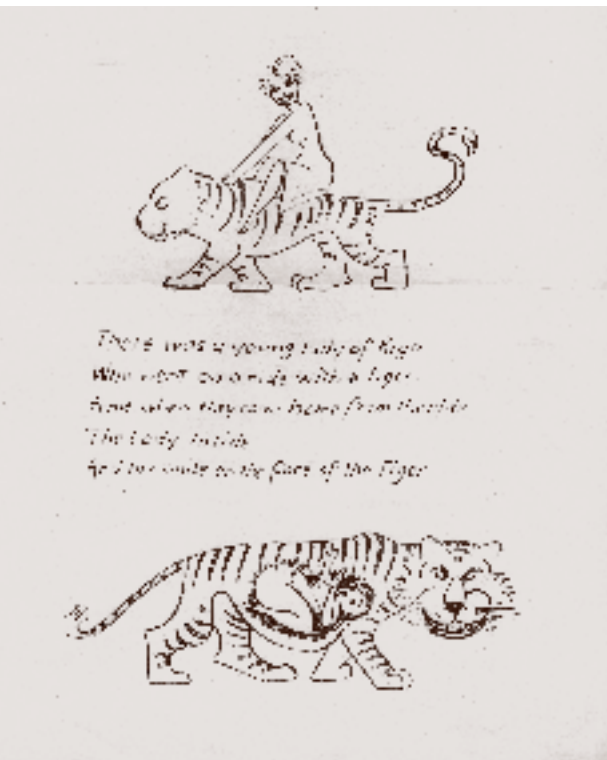 There was a young Lady of Riga
Who went on a ride with a Tiger
And when they came home from the ride
The Lady inside
And the smile on the face of the Tiger